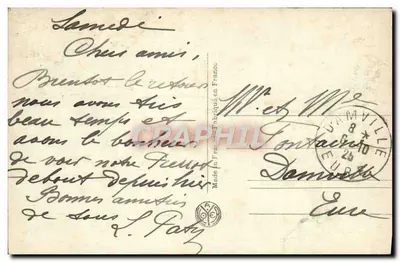 Samedi
Chers amis,
Bientot le retour
nous avons très
beau temps et
avons le bonheur
de voir notre
debout depuis hier
Bonnes amitiés
de tous
L. Paty
Made in France Fabriqué en France
Mr et Me
Fontaine
Damville
Eure
DAMVILLE
8
EURE
CARTEPOSTALE